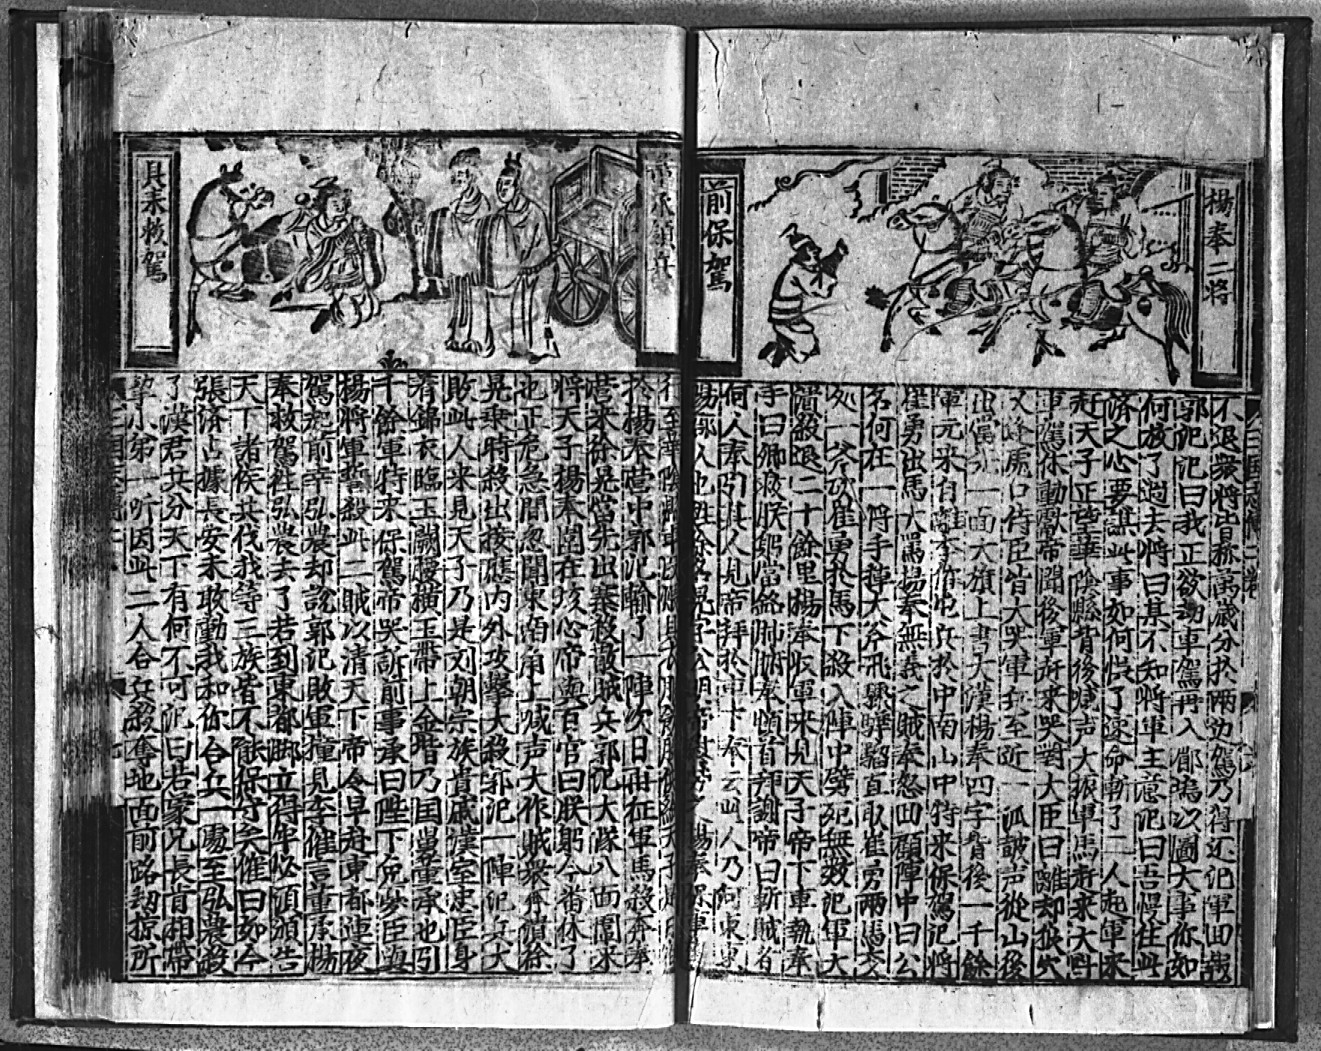 楊奉二將
前保駕
不退衆將皆称萬歲分於兩边駕乃得还汜軍回報
郭汜汜曰我正欲刼車駕再入郿塢以圖大事你如
何放了過去將曰某不知將軍主意汜曰吾悮住此
済之心要謀此事如何供了速命斬了二人起軍來
赶天子正望華陰縣背後喊声大振軍馬赶來大呌
車駕休動獻帝聞後軍赶来哭對大臣曰離却狼穴
又逢虎口侍臣皆大哭軍兵至近一派皷声從山後
出傷 一面大旗上書大漢楊奉四字背後一千餘
軍元来自離李傕屯兵於中南山中特来保駕汜將
崔勇出馬大罵楊奉無義之賊奉怒回顧陣中曰公
名何在一將手掉大斧飛驟驊騮直取崔勇兩馬交
処一斧砍崔勇於馬下殺入陣中劈死無数汜軍大
潰殺退二十餘里楊奉收軍来見天子帝下車執奉
手曰卿救朕躬當銘肺腑奉頓首拜謝帝曰斬賊者
何人奉引其人見帝拜於車下奉云此人乃河東
楊郡人也姓徐名晃字公明 楊奉保車駕
董承領兵
具来救駕
行至華陰縣
於楊奉营中郭汜輸了一陣次日再征軍馬殺奔奉
营来徐晃當先出寨殺散賊兵郭汜大隊八面圍来
將天子楊奉圍在垓心帝與百官曰朕躬今番休了
也正危急間忽聞東南角上喊声大作賊衆奔潰徐
晃乗時殺出接應内外攻擊大殺郭汜一陣汜兵大
敗此人来見天子乃是刘朝宗族貴戚漢室忠臣身
着錦衣臨玉闕腰橫玉帶上金堦乃国舅董承也引
千餘軍特来保駕帝哭訴前事承曰陛下免夢臣與
楊將軍誓殺此二賊以清天下帝令早赴東都連夜
駕起前幸弘農却説郭汜敗軍撞見李傕言董承楊
奉救駕往弘農去了若到東都脚立得牢必須頒告
天下諸侯共伐我等三族皆不能保守矣傕曰如今
張済占據長安未敢動我和你合兵一處至弘農殺
了漢君共分天下有何不可汜曰若蒙兄長肯相帶
挈小弟一听因此二人合兵殺奪地面前路刼掠所